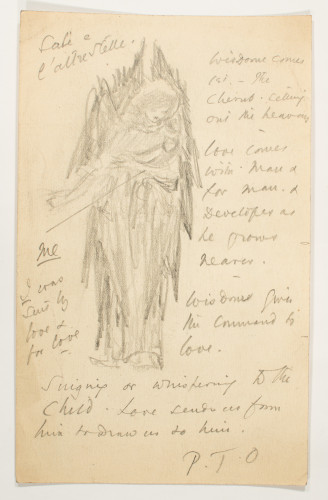 l'altre stelle.
Wisdome comes
1st. - The
Cherub. Calling
out the heavens
love comes
with Man &
for man. &
Develops as
he grows
nearer.
me
& was
sent by
love &
for love
Wisdome gives
the command to
love.
Singing or whispering to the
Child. Love sends us from
him to draw us to him.
P.T.O